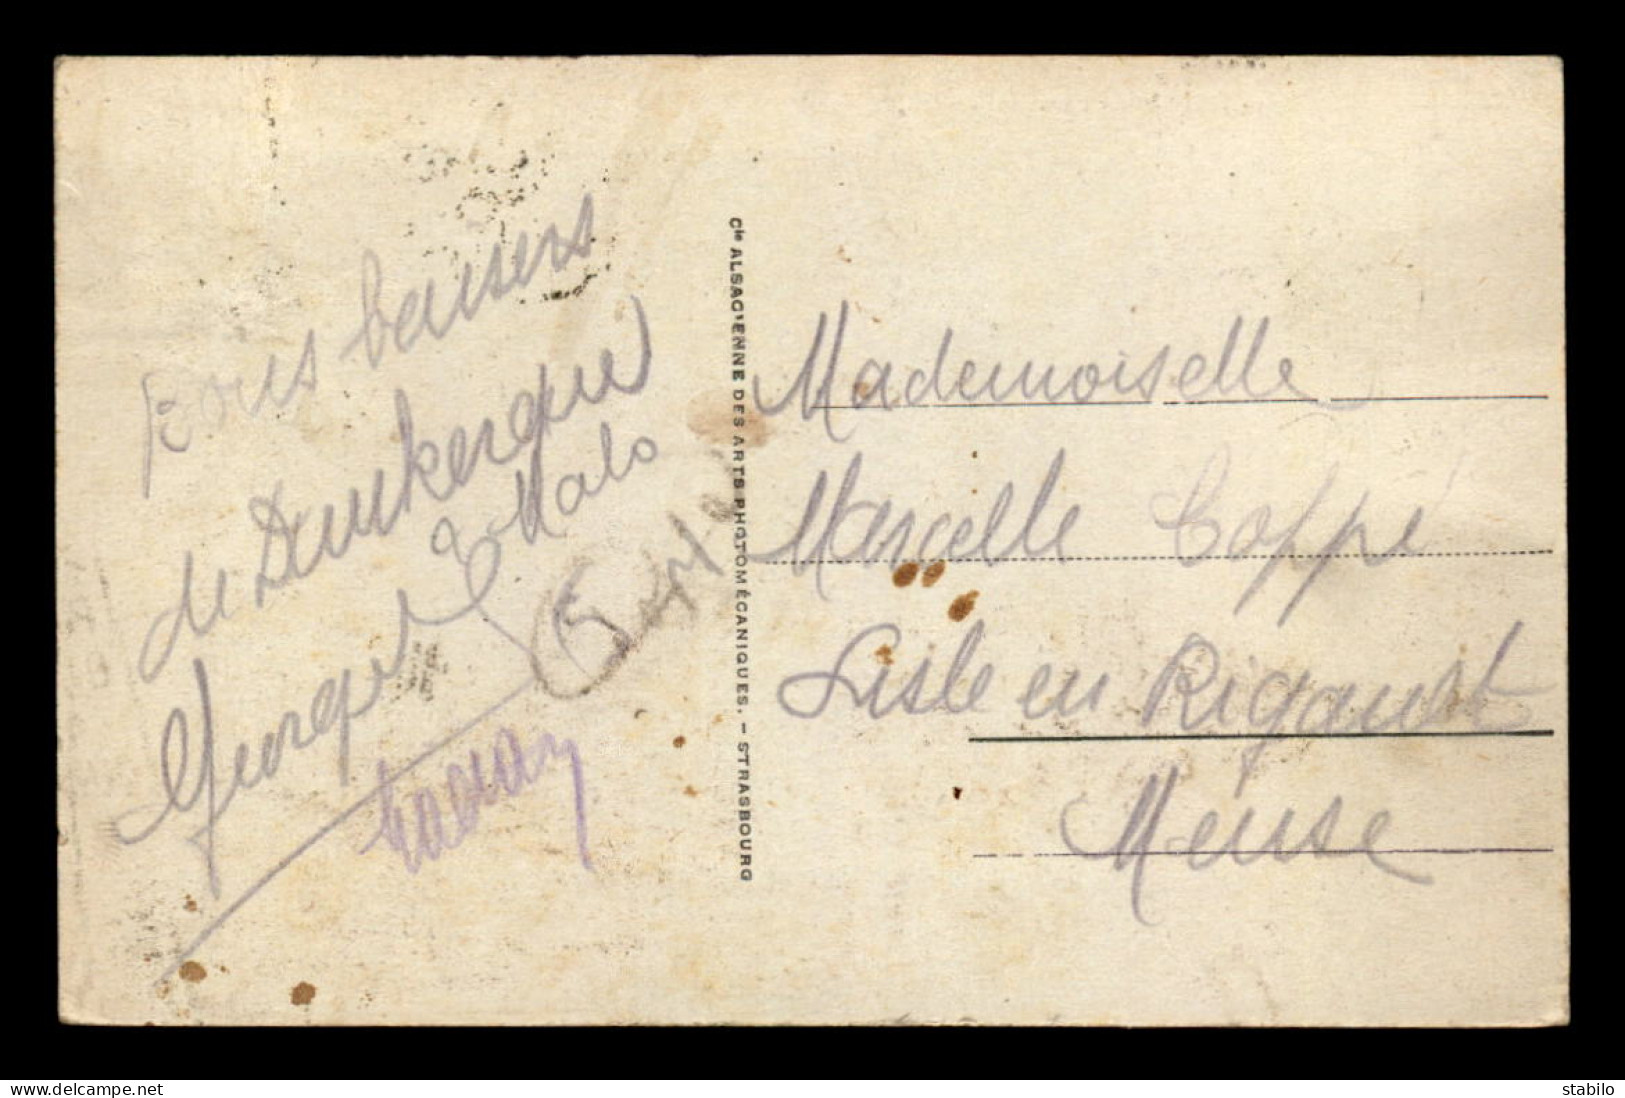 Bons baisers
de Dunkerque
& Malo
Georges
Cie ALSACIENNE DES ARTS PHOTOMÉCANIQUES. – STRASBOURG
Mademoiselle
Marcelle Coppé
Lisle en Rigault
Meuse
Website : www.delcampe.net
stabilo